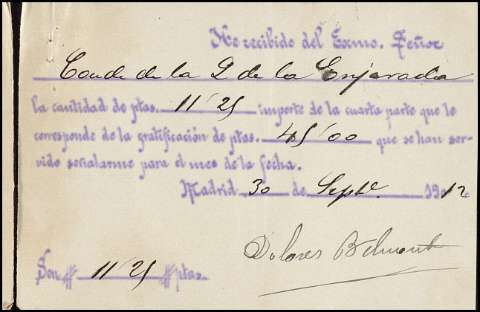 He recibido del Excmo. Señor
Conde de la P de la Enjarada
la cantidad de ptas. 11'25 importe de la cuarta parte que le
corresponde de la gratificación de ptas. 45'00 que se han ser-
vido señalarme para el mes de la fecha.
Madrid 30 de Septe. 1912
Dolores Belmont
Son # 11'25 # ptas.